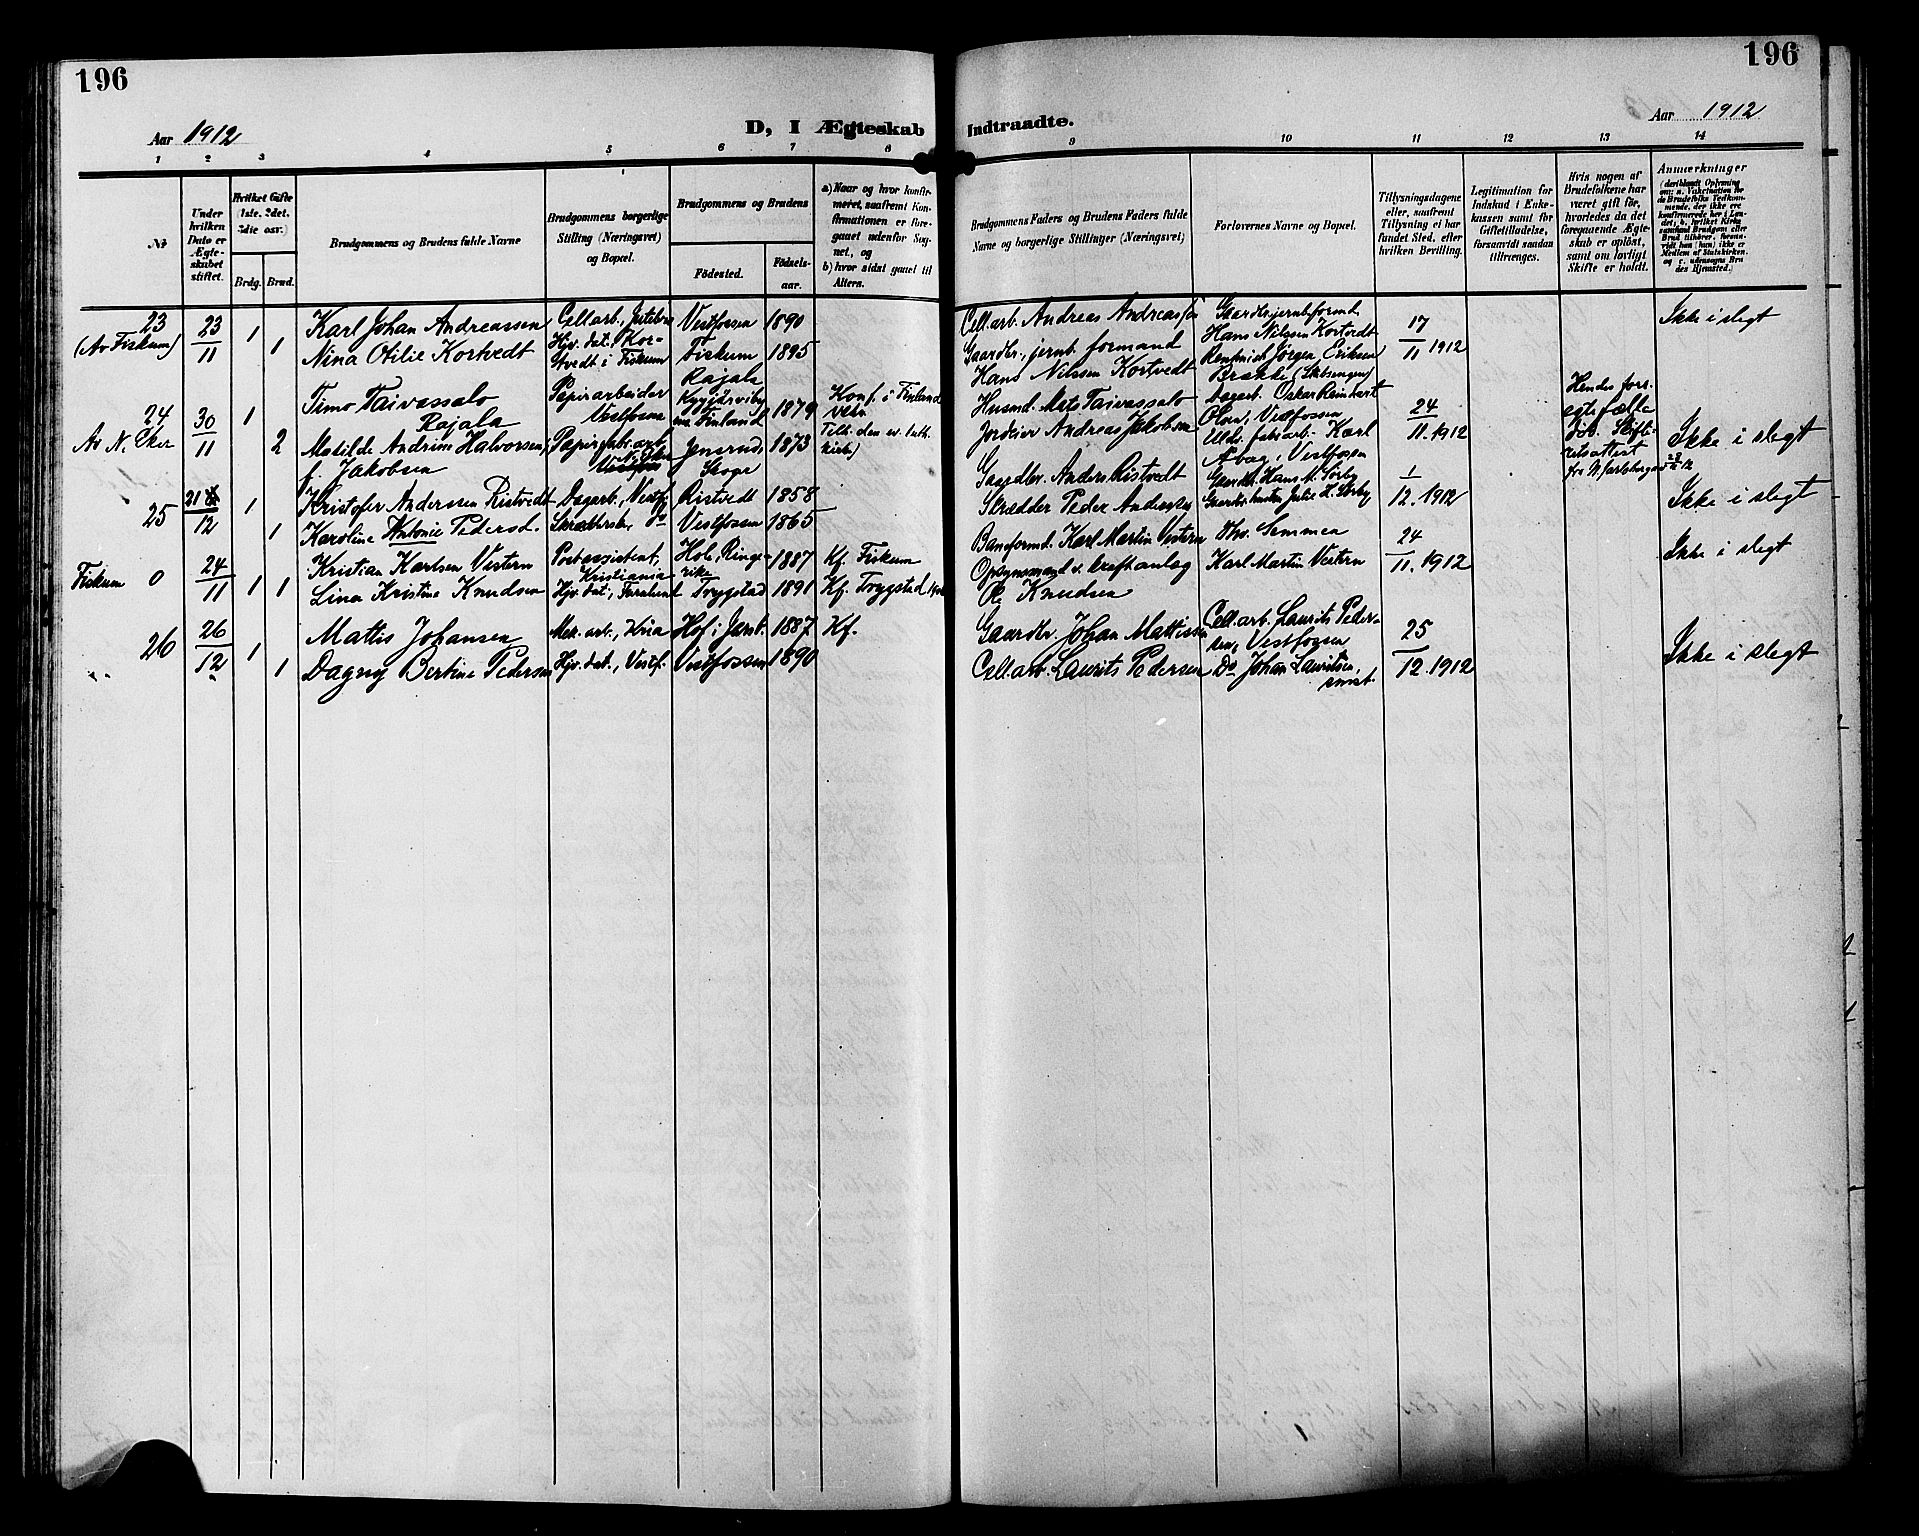 196
196
Aar 1912
D, I Ægteskab Indtraadte.
Aar 1912
1 2 3 4 5 6 7 8 9 10 11 12 13 14
№
Under hvilken Dato er Ægteskabet stiftet.
Hvilket Gifte (1ste, 2det, 3die osv.)
Brdg. Brud.
Brudgommens og Brudens fulde Navne
Brudgommens borgerlige Stilling (Næringsvei) og Bopæl.
Brudgommens og Brudens
Födested. Födselsaar.
a) Naar og hvor konfirmeret, saafremt Konfirmationen er foregaaet udenfor Sognet, og
b) hvor sidst gaaet til Alters.
Brudgommens Faders og Brudens Faders fulde Navne og borgerlige Stillinger (Næringsvei)
Forlovernes Navne og Bopæl.
Tillysningsdagene eller, saafremt Tillysning ei har fundet Sted, efter hvilken Bevilling.
Legitimation for Indskud i Enkekassen samt for Giftetilladelse, forsaavidt saadan tiltrænges.
Hvis nogen af Brudefolkene har været gift för, hvorledes da det foregaaende Ægteskab er oplöst, samt om lovligt Skifte er holdt.
Anmærkninger
23 (Av Fiskum) 23/11 1 Karl Johan Andreassen Cell.arb., Vestfossen 1890 Cell.arb. Andreas Andreassen Gaardbr. jernb.formd Hans Nilsen Kortvedt 17/11 1912 Ikke i slegt
1 Nina Otilie Kortvedt Hjv. dat., Kortvedt i Fiskum Fiskum 1895 Gaardbr., jernb. formand Hans Nilsen Kortvedt Jørgen Eriksen Brække
24 Av N. Eker 30/11 1 Timo Taivassalo Rajala Papirarbeider Vestfossen Rajala Finland 1879 Konf. i Finland Husmd. Mats Taivassalo Dagarb. Oskar Reinhart Vestfossen 24/11 1912 Hendes forr. egtefælle død. Skifteretsattest Ikke i slegt
2 Matilde Andrine Halvorsen, f. Jakobsen Papirfabr.arb. N. Eker 1873 Jordeier Andreas Jakobsen Karl Vestfossen
25 21/12 1 Kristofer Andersen Ristvedt Dagarb., Vestf. Ristvedt 1858 Gaardbr. Anders Ristvedt Gaardbr. Hans M. Sørby 1/12 1912 Ikke i slegt
1 Karoline Antonie Pedersd. Vestfossen 1865 Skrædder Peder Andersen Julie H. Sørby
Fiskum 0 24/11 1 Kristian Karlsen Vestern Postassistent, Kristiania Hol, Ringerike 1887 Kf. Fiskum Baneformd. Karl Martin Vestern Ths. Semmen 24/11 1912 Ikke i slegt
1 Lina Kristine Knudsen Hjv. dat., Trygstad 1891 Kf. Trygstad Opsynsmand v. kraftanlæg Ole Knudsen Karl Martin Vestern
26 26/12 1 Mattis Johansen Mek. arb., Kria Hof i Jarlsb. 1887 Kf. Gaardbr. Johan Mattissen Cell.arb. Laurits Pedersen, Vestfossen 25/12 1912 Ikke i slegt
1 Dagny Bertine Pedersen Hjv. dat., Vestf. Vestfossen 1890 Cell.arb. Laurits Pedersen Do Johan Lauritsen, smst.